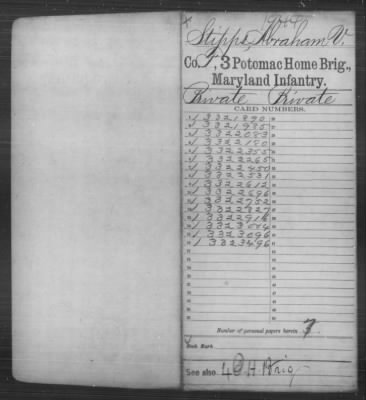 Stipps, Abraham V.
Co. F, 3 Potomac Home Brig.,
Maryland Infantry.
Private Private
CARD NUMBERS.
1 3321890
1 3321985
1 3322083
1 3322180
1 3322355
1 3322265
1 3322450
1 3322531
1 3322612
1 3322696
1 3322752
1 3322827
1 3322916
1 3323004
1 3323096
1 3323496
Number of personal papers herein 7
Book Mark
See also 4 P H Brig